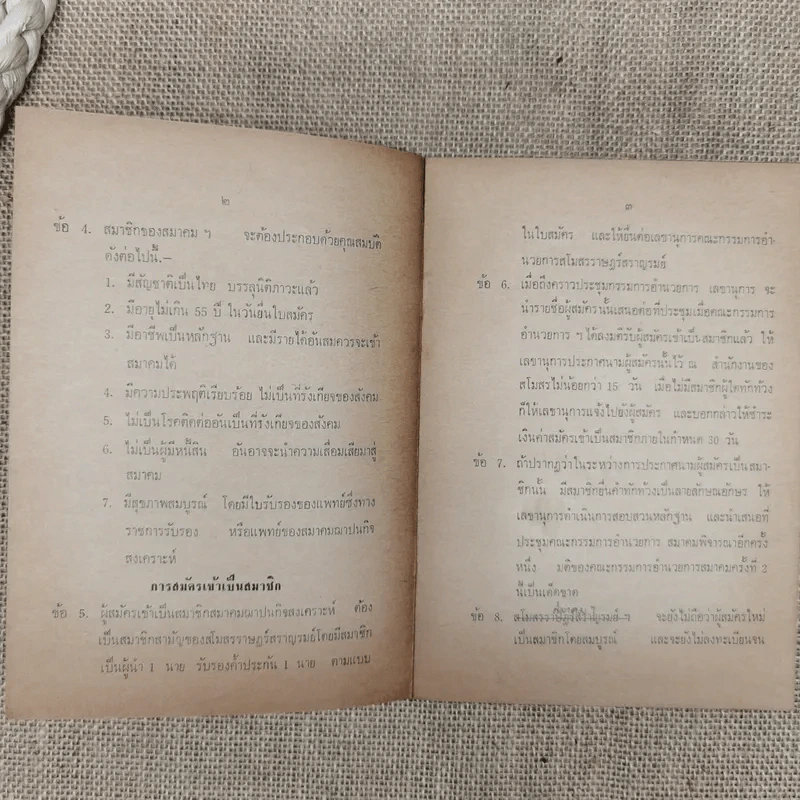 ๒
ข้อ 4. สมาชิกของสมาคม ฯ จะต้องประกอบด้วยคุณสมบัติ
ดังต่อไปนี้.—
1. มีสัญชาติเป็นไทย บรรลุนิติภาวะแล้ว
2. มีอายุไม่เกิน 55 ปี ในวันยื่นใบสมัคร
3. มีอาชีพเป็นหลักฐาน และมีรายได้อันสมควรจะเข้า
สมาคมได้
4. มีความประพฤติเรียบร้อย ไม่เป็นที่รังเกียจของสังคม
5. ไม่เป็นโรคติดต่ออันเป็นที่รังเกียจของสังคม
6. ไม่เป็นผู้มีหนี้สิน อันอาจจะนำความเสื่อมเสียมาสู่
สมาคม
7. มีสุขภาพสมบูรณ์ โดยมีใบรับรองของแพทย์ซึ่งทาง
ราชการรับรอง หรือแพทย์ของสมาคมฌาปนกิจ
สงเคราะห์
การสมัครเข้าเป็นสมาชิก
ข้อ 5. ผู้สมัครเข้าเป็นสมาชิกสมาคมฌาปนกิจสงเคราะห์ ต้อง
เป็นสมาชิกสามัญของสโมสรราษฎร์สราญรมย์โดยมีสมาชิก
เป็นผู้นำ 1 นาย รับรองค้ำประกัน 1 นาย ตามแบบ
๓
ในใบสมัคร และให้ยื่นต่อเลขานุการคณะกรรมการอำ-
นวยการสโมสรราษฎร์สราญรมย์
ข้อ 6. เมื่อถึงคราวประชุมกรรมการอำนวยการ เลขานุการ จะ
นำรายชื่อผู้สมัครนั้นเสนอต่อที่ประชุมเมื่อคณะกรรมการ
อำนวยการ ฯ ได้ลงมติรับผู้สมัครเข้าเป็นสมาชิกแล้ว ให้
เลขานุการประกาศนามผู้สมัครนั้นไว้ ณ สำนักงานของ
สโมสรไม่น้อยกว่า 15 วัน เมื่อไม่มีสมาชิกผู้ใดทักท้วง
ก็ให้เลขานุการแจ้งไปยังผู้สมัคร และบอกกล่าวให้ชำระ
เงินค่าสมัครเข้าเป็นสมาชิกภายในกำหนด 30 วัน
ข้อ 7. ถ้าปรากฏว่าในระหว่างการประกาศนามผู้สมัครเป็นสมา-
ชิกนั้น มีสมาชิกยื่นคำทักท้วงเป็นลายลักษณ์อักษร ให้
เลขานุการดำเนินการสอบสวนหลักฐาน และนำเสนอที่
ประชุมคณะกรรมการอำนวยการ สมาคมพิจารณาอีกครั้ง
หนึ่ง มติของคณะกรรมการอำนวยการสมาคมครั้งที่ 2
นี้เป็นเด็ดขาด
ข้อ 8. สโมสรราษฎร์สราญรมย์ ฯ จะยังไม่ถือว่าผู้สมัครใหม่
เป็นสมาชิกโดยสมบูรณ์ และจะยังไม่ลงทะเบียนจน